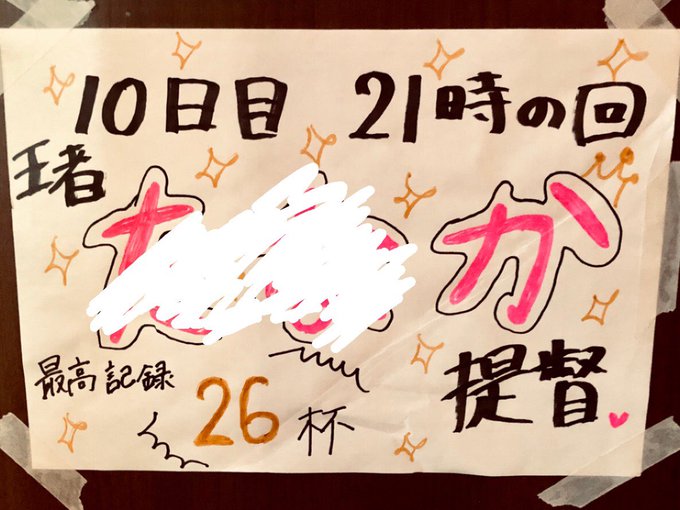 10日目 21時の回
王者
か
提督
最高記録
26杯